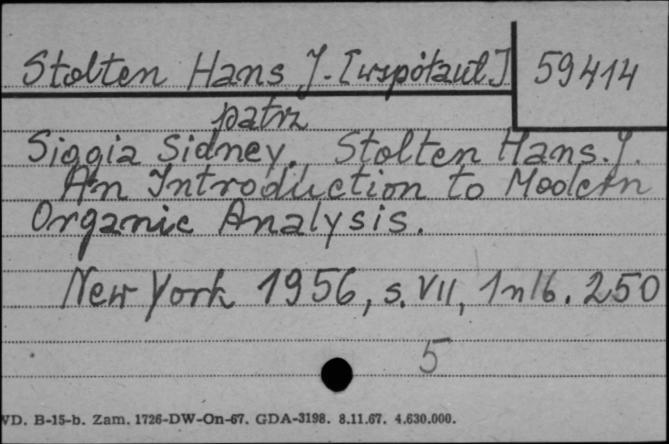 Stolten Hans J. [współaut.] 59414
patrz
Siggia Sidney, Stolten Hans. J.
An Introduction to Modern
Organic Analysis.
New York 1956, s. VII, 1nlb. 250
5
VD. B-15-b. Zam. 1726-DW-On-67. GDA-3198. 8.11.67. 4.630.000.